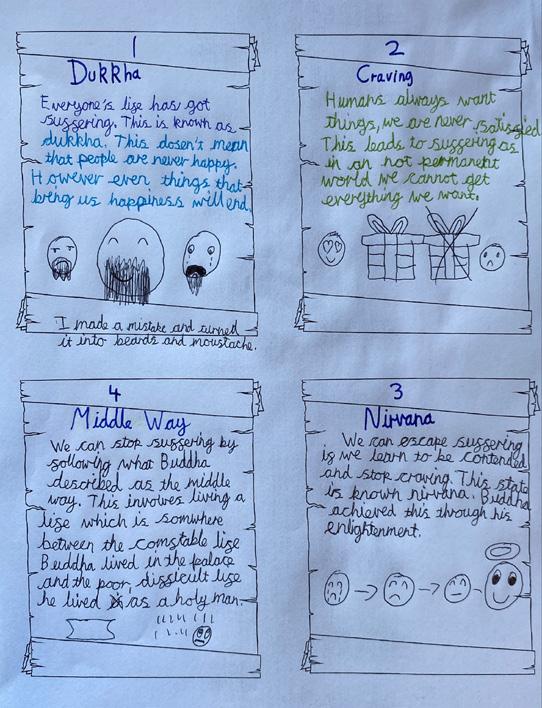 1
Dukkha
Everyone's life has got
suffering. This is known as
dukkha. This dosen't mean
that people are never happy.
However even things that
bring us happiness will end.
I made a mistake and turned
it into beards and moustache.
2
Craving
Humans always want
things, we are never satisfied
This leads to suffering as
in an not permanent
world we cannot get
everything we want.
4
Middle Way
We can stop suffering by
following what Buddha
described as the middle
way. This involves living a
life which is somwhere
between the comftable life
Buddha lived in the palace
and the poor, difficult life
he lived as a holy man.
3
Nirvana
We can escape suffering
if we learn to be contended
and stop craving. This state
is known nirvana. Buddha
achieved this through his
enlightenment.